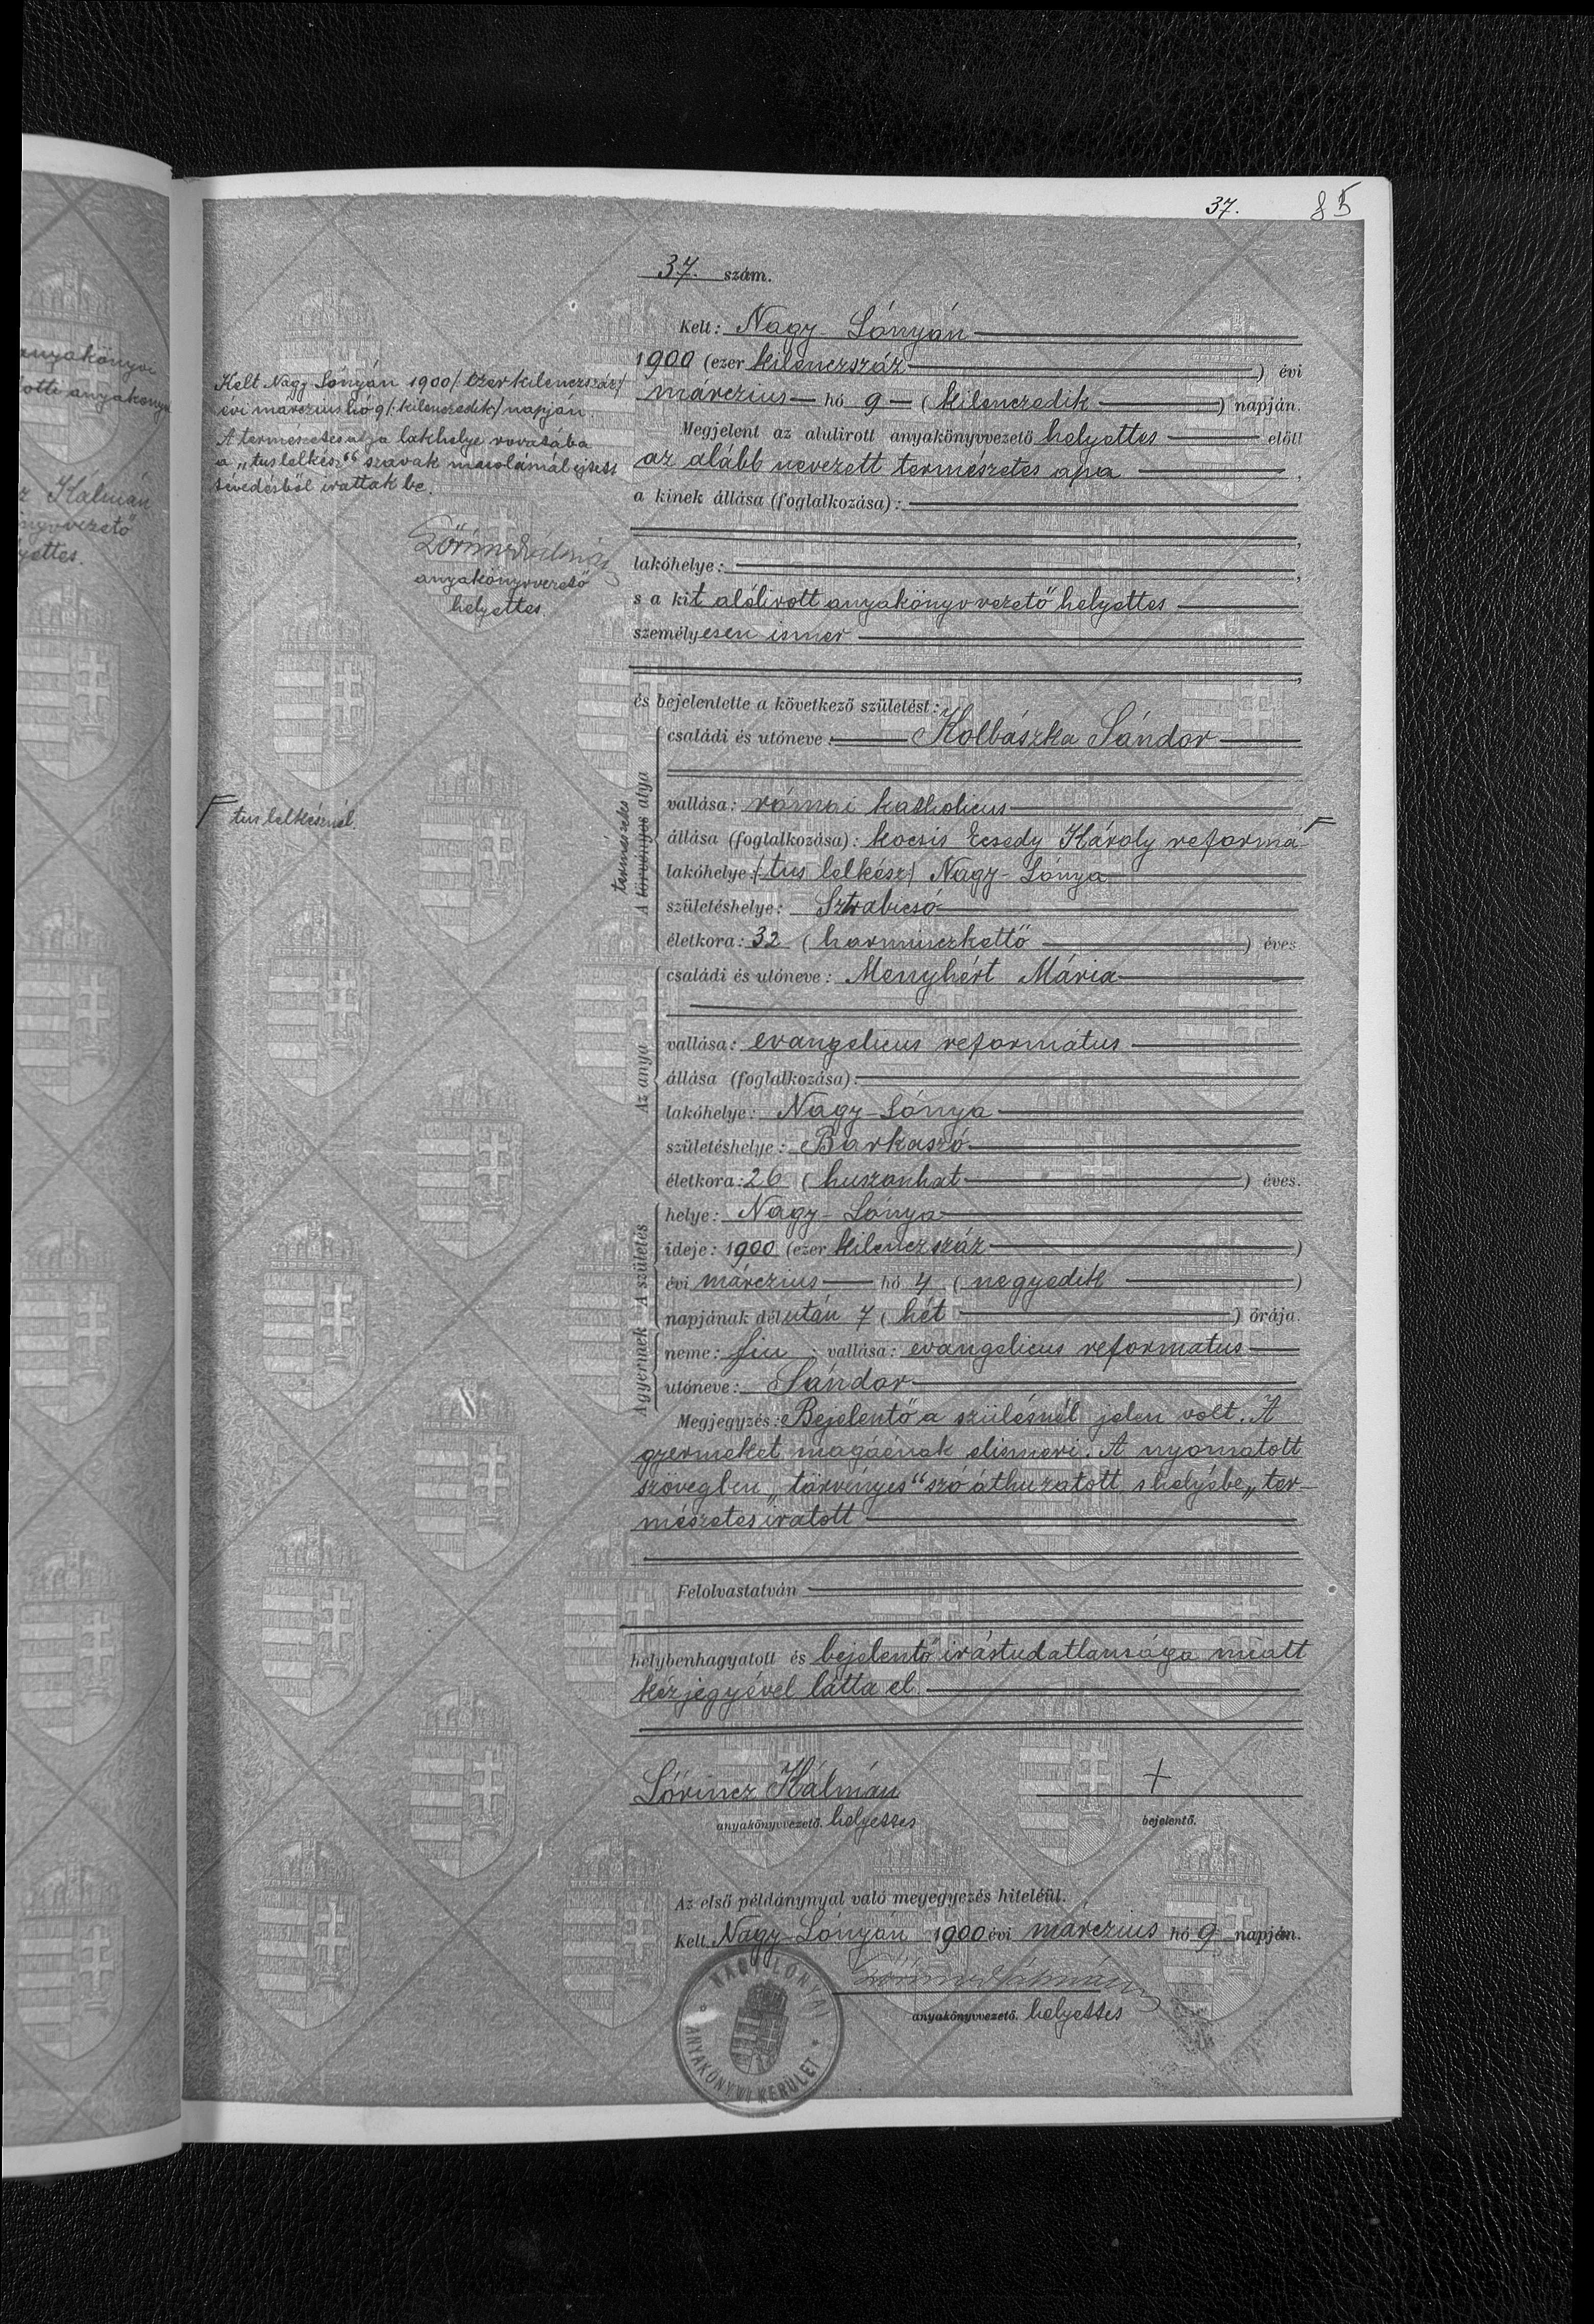 37. 85
37. szám.
Kelt: Nagy-Lónyán
1900 (ezer kilenczszáz) évi
márczius hó 9 (kilenczedik) napján.
Megjelent az alulirott anyakönyvvezető helyettes előtt
az alább nevezett természetes apa,
a kinek állása (foglalkozása):
lakóhelye:
s a kit alólirott anyakönyvvezető helyettes
személyesen ismer
és bejelentette a következő születést:
A törvényes atya
természetes
családi és utóneve: Kolbászka Sándor
vallása: római katholicus
állása (foglalkozása): kocsis Ecsedy Károly reformá-
lakóhelye: /tus lelkész/ Nagy-Lónya
születéshelye: Sztrabicsó
életkora: 32 (harminczkettő) éves
Az anya
családi és utóneve: Menyhért Mária
vallása: evangelicus református
állása (foglalkozása):
lakóhelye: Nagy-Lónya
születéshelye: Barkaszó
életkora: 26 (huszonhat) éves.
A születés
helye: Nagy-Lónya
ideje: 1900 (ezer kilenczszáz)
évi márczius hó 4 (negyedik)
napjának délután 7 (hét) órája.
A gyermek
neme: fiu; vallása: evangelicus reformatus
utóneve: Sándor
Megjegyzés: Bejelentő a szülésnél jelen volt. A
gyermeket magáénak elismeri. A nyomatott
szövegben „törvényes“ szó áthuzatott, s helyébe „ter-
mészetes iratott
Felolvastatván
helybenhagyatott és bejelentő irástudatlansága miatt
kézjegyével látta el.
Lőrincz Kálmán +
anyakönyvvezető. helyettes bejelentő.
Az első példánynyal való megegyezés hiteléül.
Kelt Nagy-Lónyán 1900 évi márczius hó 9 napján.
Lőrincz Kálmán
anyakönyvvezető. helyettes
NAGY LÓNYAI
ANYAKÖNYVI KERÜLET
Kelt Nagy Lónyán 1900 /:ezerkilenczszáz/
évi marczius hó 9 /:kilenczedik/ napján.
A természetes atya lakhelye rovatába
a „tus lelkész“ szavak másolásnál
tévedésből irattak be.
Lőrincz Kálmán
anyakönyvvezető
helyettes.
tus lelkésznél.
anyakönyvi
Kálmán